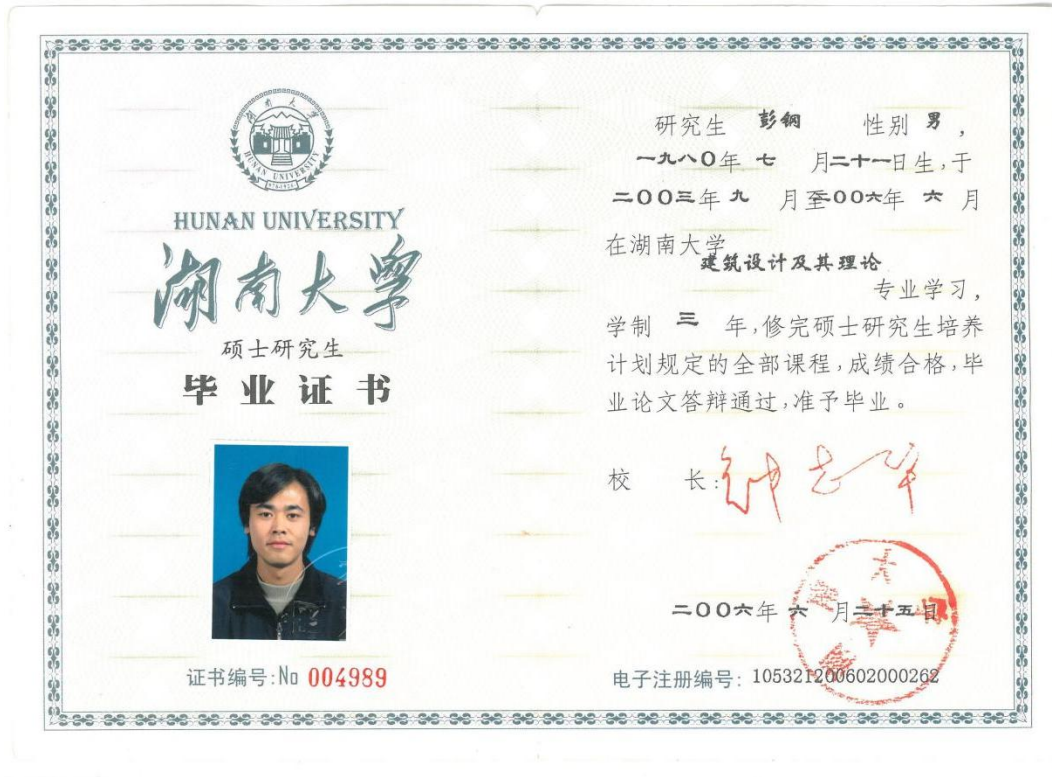 湖南大学
HUNAN UNIVERSITY
1976-1926
HUNAN UNIVERSITY
湖南大学
硕士研究生
毕业证书
证书编号:No 004989
研究生 彭钢 性别 男,
一九八0年 七 月二十一日生,于
二00三年 九 月至二00六年 六 月
在湖南大学
建筑设计及其理论
专业学习,
学制 三 年,修完硕士研究生培养
计划规定的全部课程,成绩合格,毕
业论文答辩通过,准予毕业。
校 长:钟志华
二00六年 六 月二十五日
电子注册编号: 105321200602000262